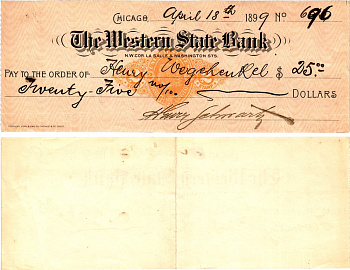 CHICAGO, April 18th 1899 No 696
The Western State Bank
N.W. COR. LA SALLE & WASHINGTON STS.
PAY TO THE ORDER OF Henry Wegehenkel $ 25.00
Twenty-Five no/100 DOLLARS
Henry Schwartz